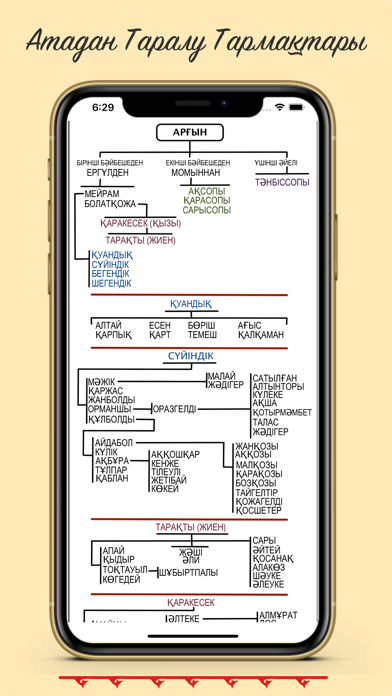 Атадан Таралу Тармақтары
6:29
АРҒЫН
БІРІНШІ БӘЙБІШЕДЕН
ЕРГҮЛДЕН
ЕКІНШІ БӘЙБІШЕДЕН
МОМЫННАН
ҮШІНШІ ӘЙЕЛІ
ТӘНБІССОПЫ
АҚСОПЫ
ҚАРАСОПЫ
САРЫСОПЫ
МЕЙРАМ
БОЛАТҚОЖА
ҚАРАКЕСЕК (ҚЫЗЫ)
ТАРАҚТЫ (ЖИЕН)
ҚУАНДЫҚ
СҮЙІНДІК
БЕГЕНДІК
ШЕГЕНДІК
ҚУАНДЫҚ
АЛТАЙ
ҚАРПЫҚ
ЕСЕН
ҚАРТ
БӨРІШ
ТЕМЕШ
АҒЫС
ҚАЛҚАМАН
СҮЙІНДІК
МӘЖІК
ҚАРЖАС
ЖАНБОЛДЫ
ОРМАНШЫ
ҚҰЛБОЛДЫ
ОРАЗГЕЛДІ
МАЛАЙ
ЖӘДІГЕР
САТЫЛҒАН
АЛТЫНТОРЫ
КҮЛЕКЕ
АҚША
ҚОТЫРМӘМБЕТ
ТАЛАС
ЖӘДІГЕР
АЙДАБОЛ
КҮЛІК
АҚБҰРА
ТҰЛПАР
ҚАБЛАН
АҚҚОШҚАР
КЕНЖЕ
ТІЛЕУЛІ
ЖЕТІБАЙ
КӨКЕЙ
ЖАНҚОЗЫ
АҚҚОЗЫ
МАЛҚОЗЫ
ҚАРАҚОЗЫ
БОЗҚОЗЫ
ТАЙГЕЛТІР
ҚОЖАГЕЛДІ
ҚОСШЕТЕР
ТАРАҚТЫ (ЖИЕН)
АПАЙ
ҚЫДЫР
ТОҚТАУЫЛ
КӨГЕДЕЙ
ЖӘШІ
ӘЛИ
ШҰБЫРТПАЛЫ
САРЫ
ӘЙТЕЙ
ҚОСАНАҚ
АЛАКӨЗ
ШӘУКЕ
ӘЛЕУКЕ
ҚАРАКЕСЕК
ӘЛТЕКЕ
АЛМҰРАТ